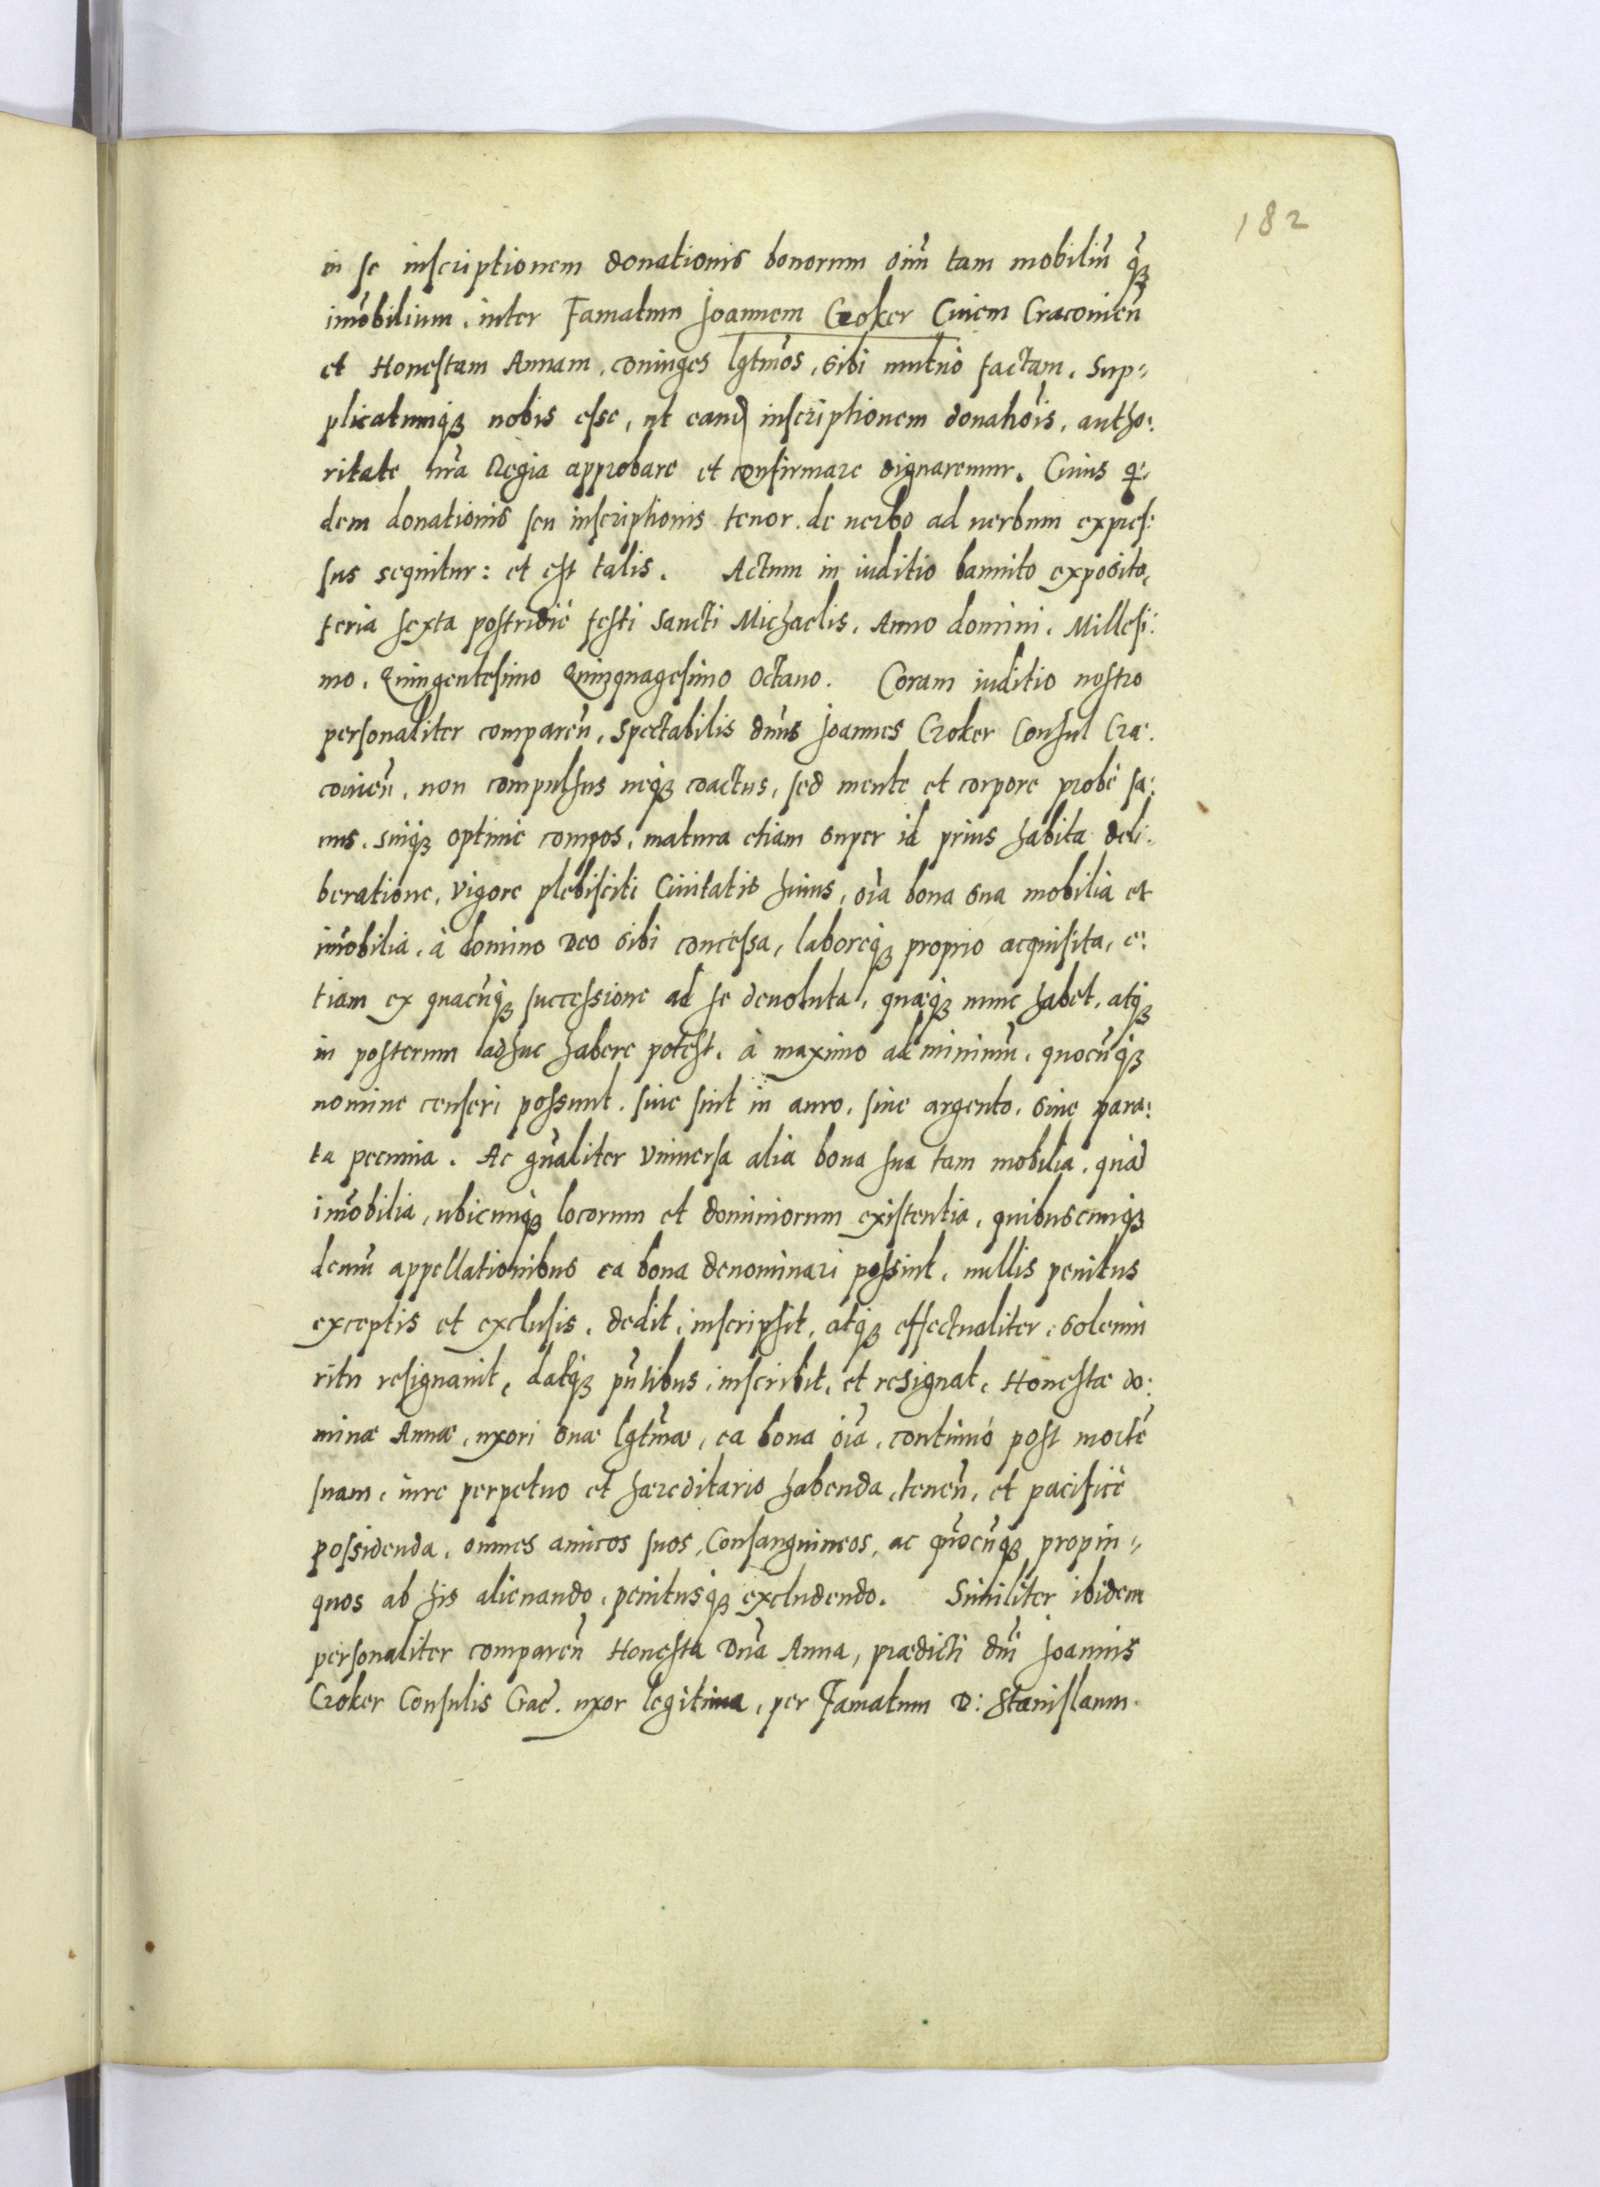 182
in se inscriptionem donationis bonorum oīm tam mobiliū q̄ȝ
im̄obilium, inter Famatum Joannem Croker Ciuem Cracouień
et Honestam Annam, coniuges lgtm̄os, sibi mutuò factam. Sup=
plicatumqȝ nobis esse, ut eand inscriptionem donatiōis, autho:
ritate nr̄a Regia approbare et confirmare dignaremur. Cuius q:
dem donationis seu inscriptionis tenor de uerbo ad uerbum expres:
sus sequitur: et est talis. Actum in iuditio bannito exposito,
feria sexta postridiè festi Sancti Michaelis. Anno domini. Millesi:
mo. Quingentesimo Quinquagesimo Octauo. Coram iuditio nostro
personaliter compareń, Spectabilis dn̄us Joannes Croker Consul Cra:
couień, non compulsus neqȝ coactus, sed mente et corpore probè sa:
nus, suiqȝ optimè compos, matura etiam super id prius habita deli:
beratione, vigore plebisciti Ciuitatis huius, oīa bona sua mobilia et
im̄obilia, à domino Deo sibi concessa, laboreqȝ proprio acquisita, e:
tiam ex quacūqȝ successione ad se deuoluta, quæqȝ nunc habet, atqȝ
in posterum adhuc habere potest, à maximo ad minimū, quocūqȝ
nomine censeri possunt, siue sint in auro, siue argento, siue para:
ta pecunia. Ac gn̄aliter vniuersa alia bona sua tam mobilia, quā
im̄obilia, ubicunqȝ locorum et dominiorum existentia, quibuscunqȝ
demū appellationibus ea bona denominari possint, nullis penitus
exceptis et exclusis, dedit, inscripsit, atqȝ effectualiter, solenni
ritu resignauit, datqȝ pn̄tibus, inscribit, et resignat, Honestæ do:
minæ Annæ, uxori suæ lgtm̄æ, ea bona oīa, continuò post mortē
suam, iure perpetuo et hæreditario habenda, teneń, et pacificè
possidenda, omnes amicos suos, Consanguineos, ac quocūqȝ propin=
quos ab his alienando, penitusqȝ excludendo. Similiter ibidem
personaliter compareń Honesta Dn̄a Anna, prædicti dn̄i Joannis
Croker Consulis Crac̄. uxor legitima, per Famatum D: Stanislaum